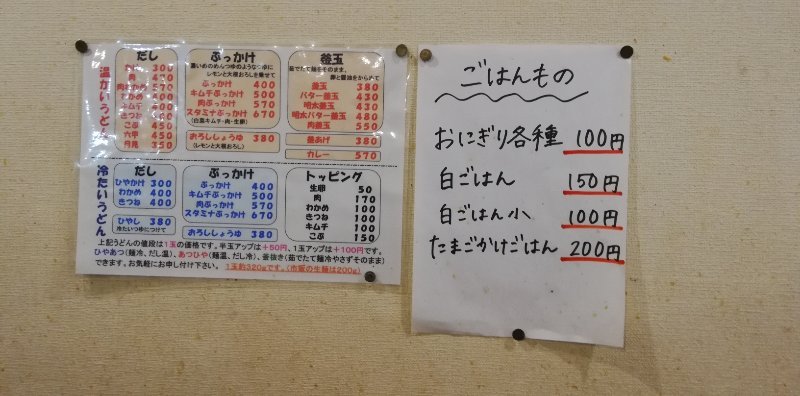 温かいうどん
だし
かけ 300
肉 470
わかめ 400
キムチ 400
きつね 400
こぶ 450
六甲 450
月見 350
ぶっかけ
濃いめのめんつゆのようなつゆに
レモンと大根おろしを乗せて
ぶっかけ 400
キムチぶっかけ 500
肉ぶっかけ 570
スタミナぶっかけ 670
(白菜キムチ・肉・生卵)
おろししょうゆ 380
(レモンと大根おろし)
釜玉
茹でたて麺をそのまま、
卵と醤油をからめて
釜玉 380
バター釜玉 430
明太釜玉 430
明太バター釜玉 480
肉釜玉 550
釜あげ 380
カレー 570
冷たいうどん
だし
ひやかけ 300
わかめ 400
きつね 400
ひやし 380
冷たいつゆにつけて
ぶっかけ
ぶっかけ 400
キムチぶっかけ 500
肉ぶっかけ 570
スタミナぶっかけ 670
おろししょうゆ 380
トッピング
生卵 50
肉 170
わかめ 100
きつね 100
キムチ 100
こぶ 150
上記うどんの値段は1玉の価格です。半玉アップは+50円、1玉アップは+100円です。
ひやあつ(麺冷、だし温)、あつひや(麺温、だし冷)、釜抜き(茹でたて麺冷やさずそのまま)
できます。お気軽にお申し付け下さい。 1玉約320gです。(市販の生麺は200g)
ごはんもの
おにぎり各種 100円
白ごはん 150円
白ごはん小 100円
たまごかけごはん 200円